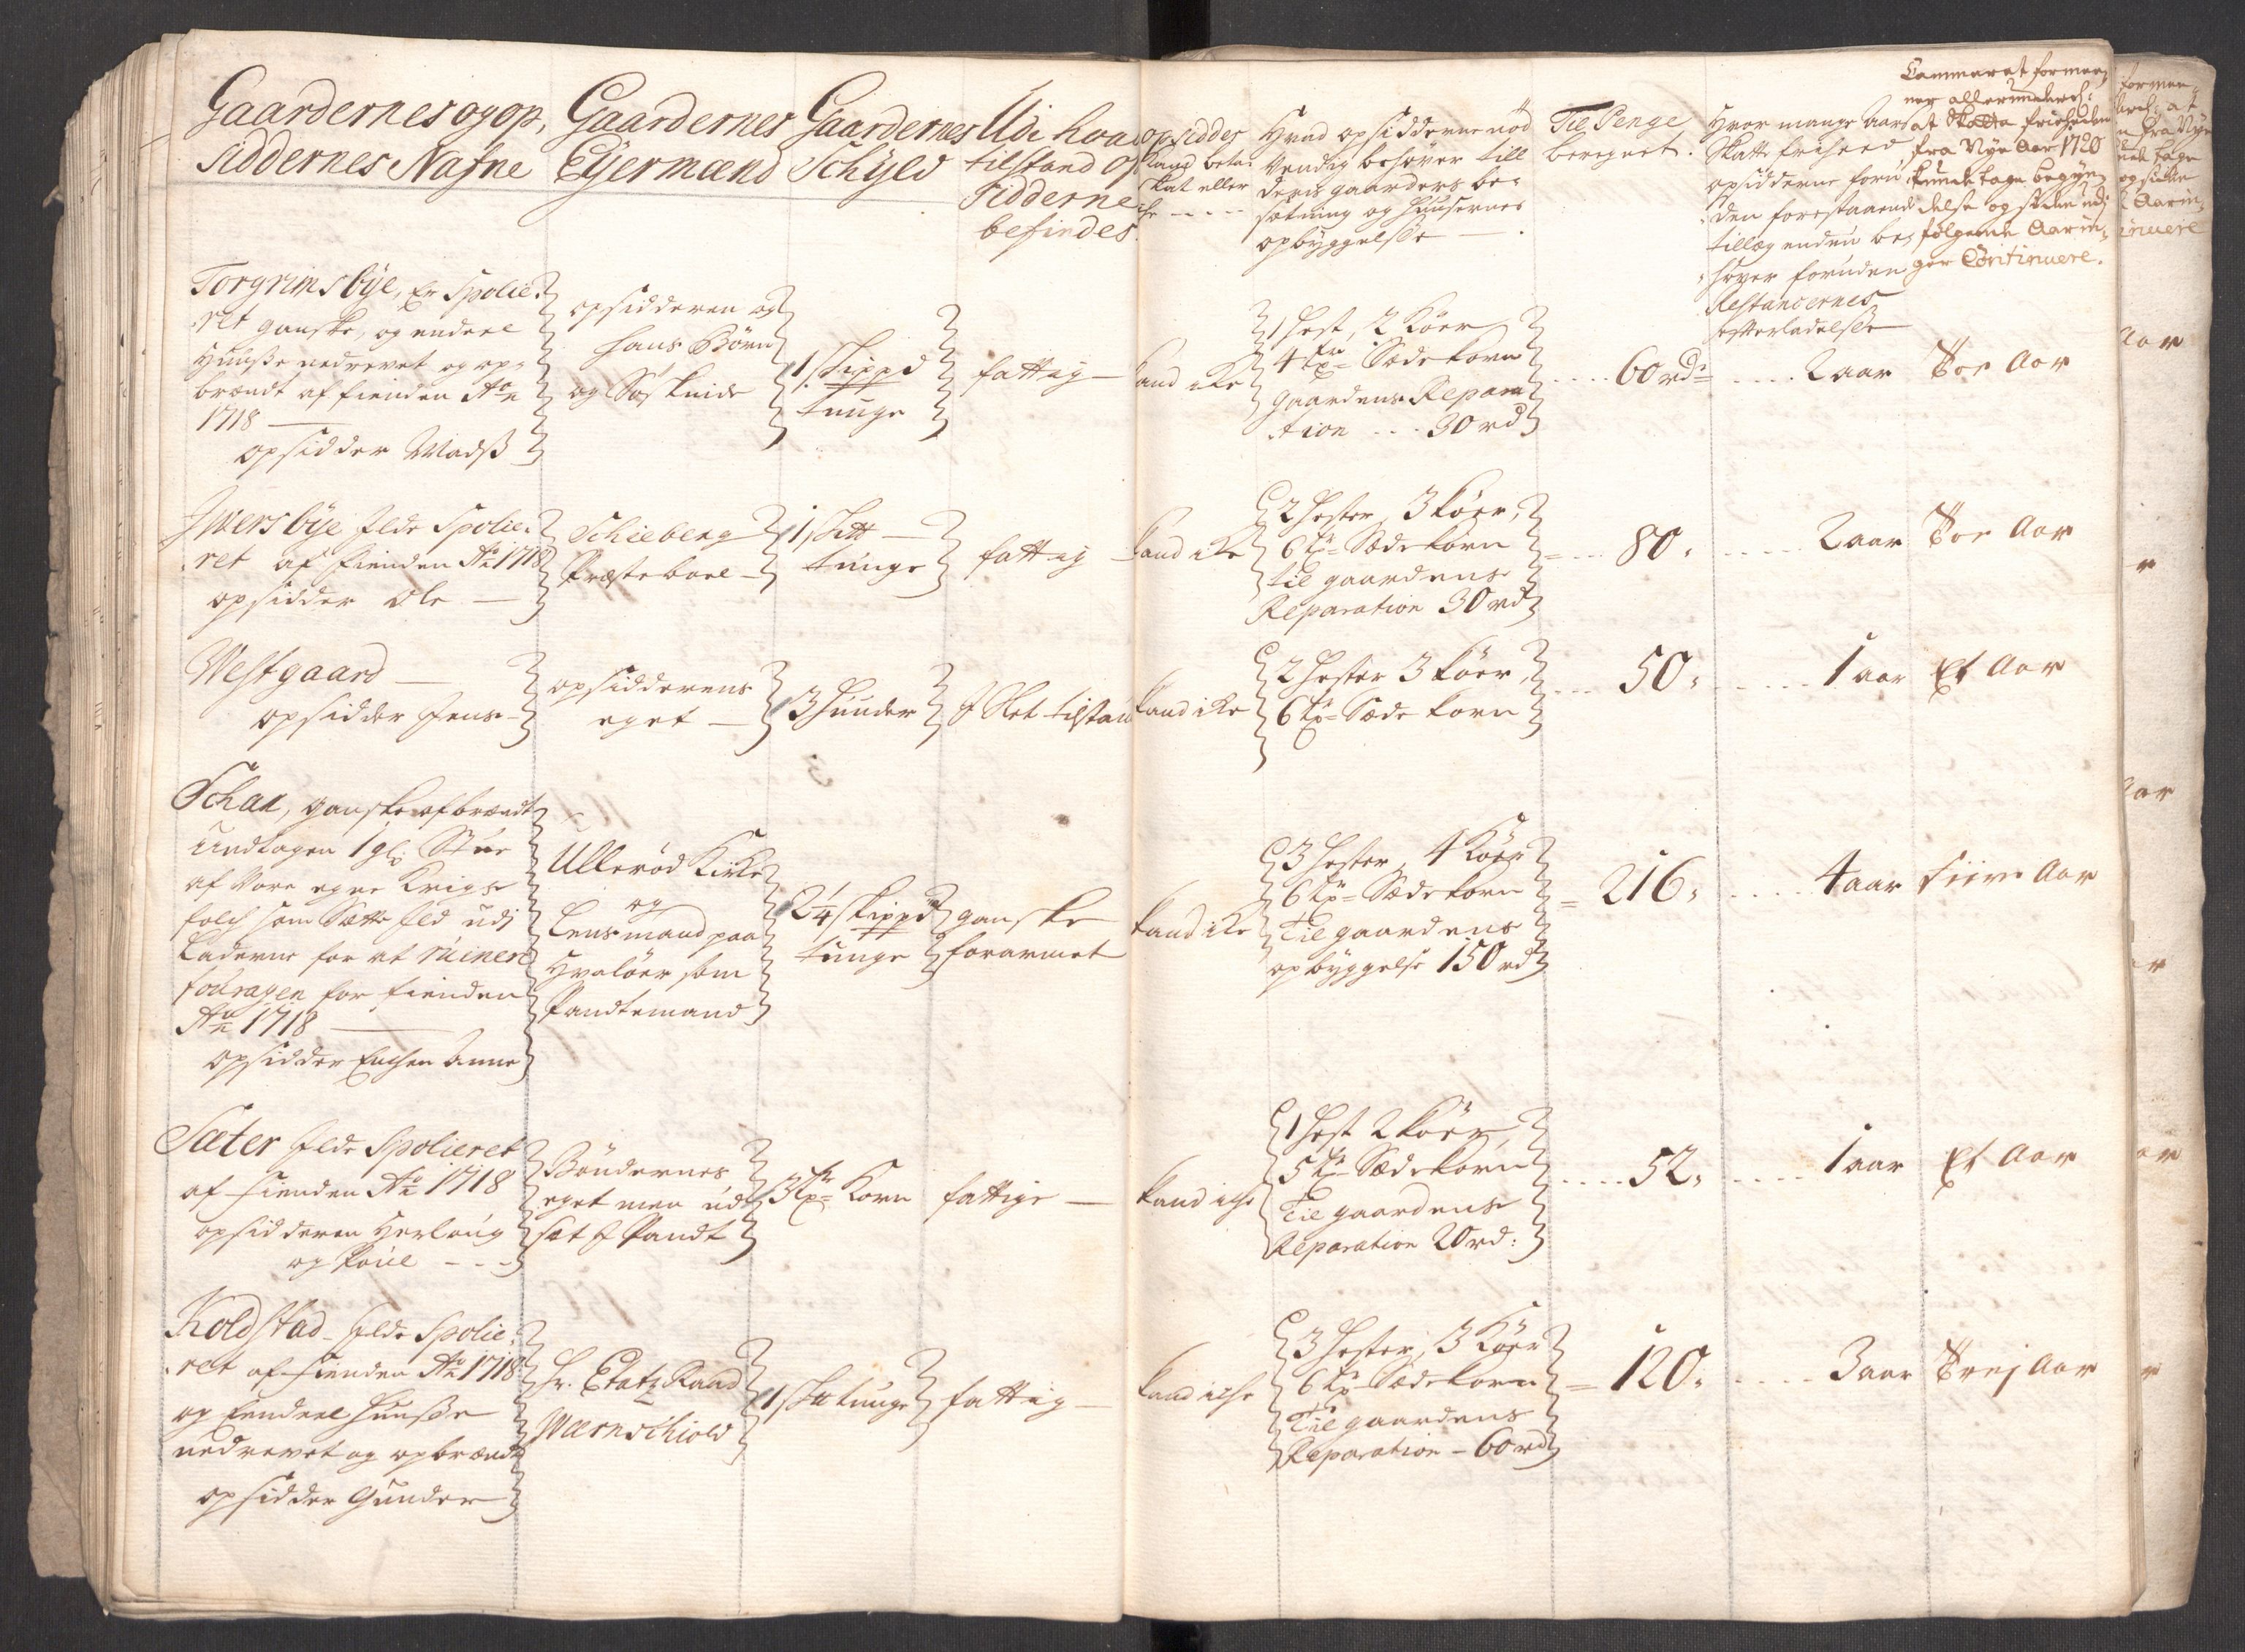 Gaardernes og op,
siddernes Nafne
Gaardernes
Eÿermænd
Gaardernes
Schÿld
Udi hva
tilstand op
sidderne
befindes.
opsidder
kand beta
skat eller
iche - - - -
Hvad opsidderne nöd
vendig behöver till
deris gaarders be-
sætning og huusernes
opbÿggelse —
Til Penge
beregnet.
Hvor mange Aars
Skatte frihed
opsidderne foru-
den forestaaende
tillæg enden be-
höver foruden
Restancernes
efterladelse
Cammeret formee-
ner allerunderd:
at Skatte friheden
fra Nÿe Aar 1720
kunde tage begÿn-
delse og siden udj
fölgende Aarin-
ger Continuere.
Torgrimsbÿe, er Spolie-
ret ganske, og endeel
huusse nedrevet og op-
brændt af fienden Ao
1718 —
opsidder Madss
opsidderen og
hans Börn
og Söskende
1 skippd
tunge
fattig —
kand icke
1 hest, 2 Köer
4 tr Sæde korn
gaardens Repara
tion - - - 30 rd
60 rdr
2 aar
Toe Aar
Iversbÿe Ilde Spolie-
ret af fienden Ao 1718
opsidder Ole —
Schieberg
Præstebord —
1 Sk —
tunge
fattig —
kand icke
2 hester, 3 köer,
6 tr Sæde korn
til gaardens
Reparation 30 rd
80.
2 aar
Toe Aar
Westgaard —
opsidder Jens —
opsidderens
eget —
3 huuder
I slet tilstan
kand icke
2 hester 3 köer,
6 tr Sæde korn
50.
1 aar
Et Aar
Schaa, ganske afbrændt
undtagen 1 gl: Stue
af vore egne Krigs
folch som Satte Ild udj
Laderne for at ruinere
fouragen for fienden
Ao 1718 —
opsidder Enchen Anne
Ullerød Kirke
og
Lensmand paa
Hvalöer som
Pandtemand
2 1/4 skippd
tunge
ganske
forarmet
kand icke
3 hester, 4 Köer
6 tr Sæde korn
Til gaardens
opbÿggelse 150 rd
216.
4 aar
Fiire Aar
Sæter Ilde Spolieret
af fienden Ao 1718
opsidderen Herloug
og Poul - - -
Böndernes
eget men ud
sat I Pandt
3 tr Korn
fattige —
kand iche
1 hest 2 köer,
5 tr Sæde korn
Til gaardens
Reparation 20 rd:
52.
1 aar
Et Aar
Koldstad Ilde Spolie-
ret af fienden Ao 1718
og Eendeel huusse
nedrevet og opbrændt
opsidder Gunder
Hr. Etatz Raad
Wærnschiold
1 Sk tunge
fattig —
kand iche
3 hester, 3 Köer
6 tr Sæde korn
Til gaardens
Reparation - 60 rd
120.
3 aar
Trej Aar